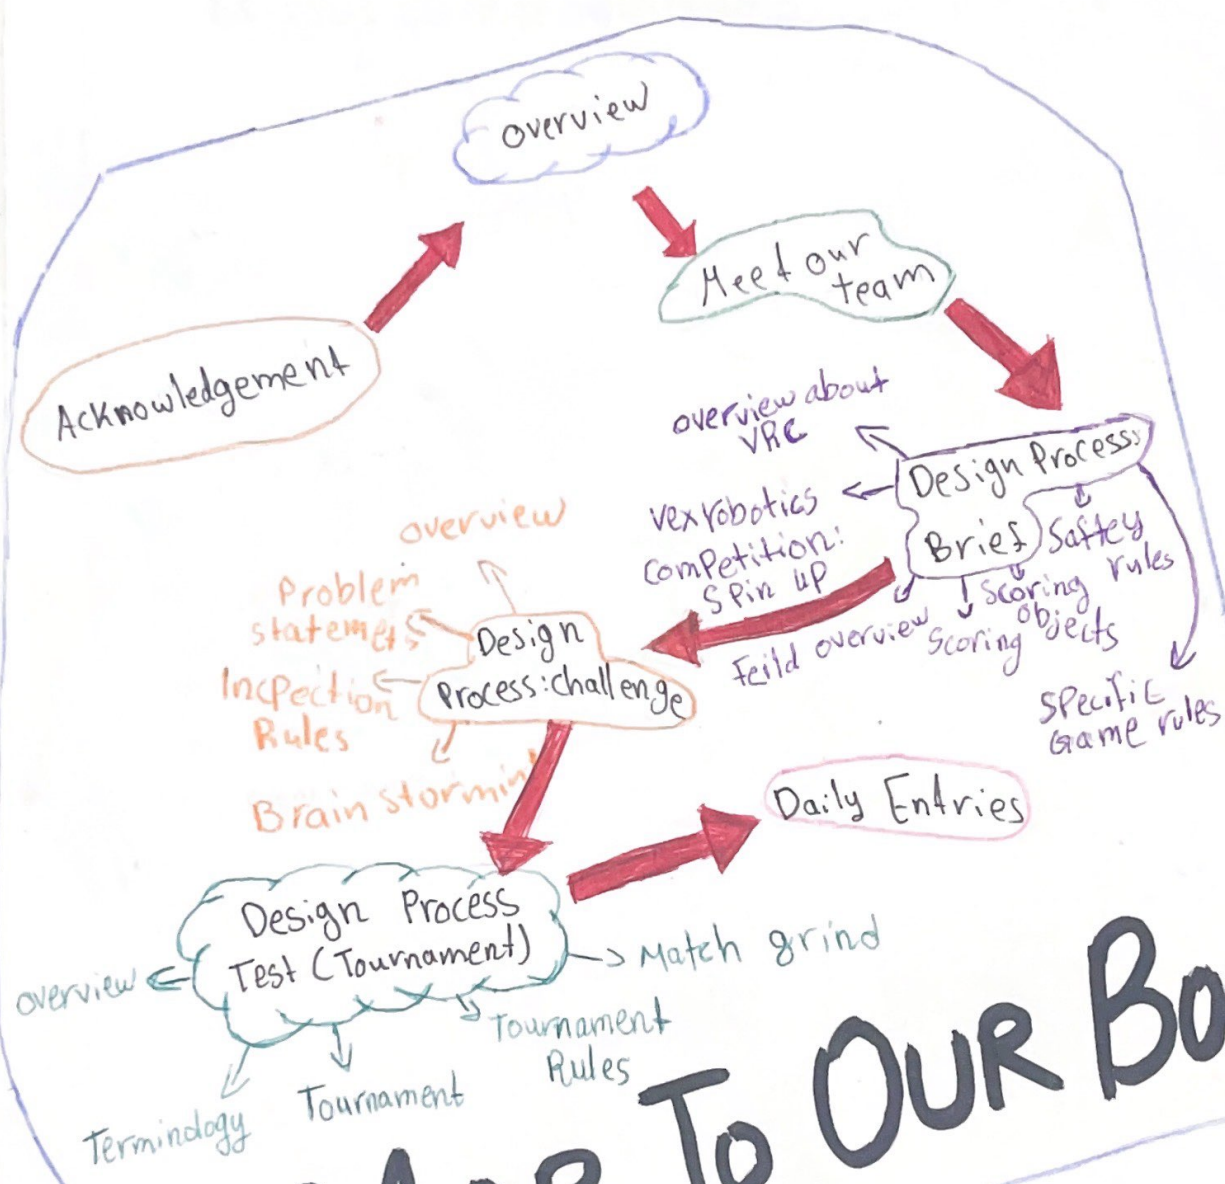 overview
Meet our
team
Acknowledgement
overview about
VRC
Design Process:
Brief
vexrobotics
competition:
Spin up
Saftey
rules
Scoring
objects
Scoring
Feild overview
Specific
Game rules
Design
Process:challenge
overview
Problem
statemets
Incpection
Rules
Brain stormin
Daily Entries
Design Process
Test (Tournament)
overview
Match grind
Tournament
Rules
Tournament
Terminology
To OUR Bo